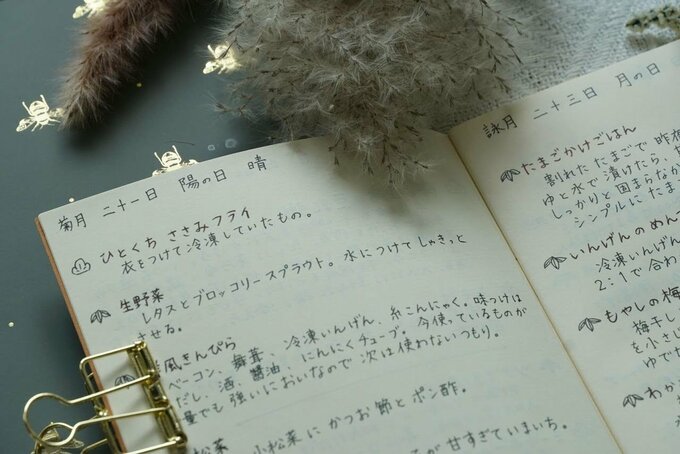 菊月 二十一日 陽の日 晴
ひとくち ささみフライ
衣をつけて冷凍していたもの。
生野菜
レタスとブロッコリースプラウト。水につけてしゃきっと
させる。
風きんぴら
ベーコン、舞茸、冷凍いんげん、糸こんにゃく。味つけは
だし、酒、醤油、にんにくチューブ。今使っているものが
量でも強いにおいなので次は使わないつもり。
松菜
小松菜にかつお節とポン酢。
が甘すぎていまいち。
詠月 二十三日 月の日
たまごかけごはん
割れたたまごで昨
ゆと水で漬けたら、
しっかりと固まらなか
シンプルにたま
いんげんのめん
冷凍いんげん
2:1で合わ
もやしの梅
梅干し
を小さ
ゆで
わか